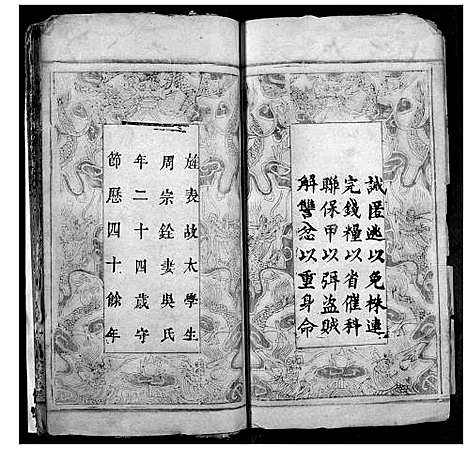 誡匿逃以免株連
完錢糧以省催科
聯保甲以弭盜賊
解讐忿以重身命
旌表故太學生
周宗銓妻吳氏
年二十四歲守
節歷四十餘年